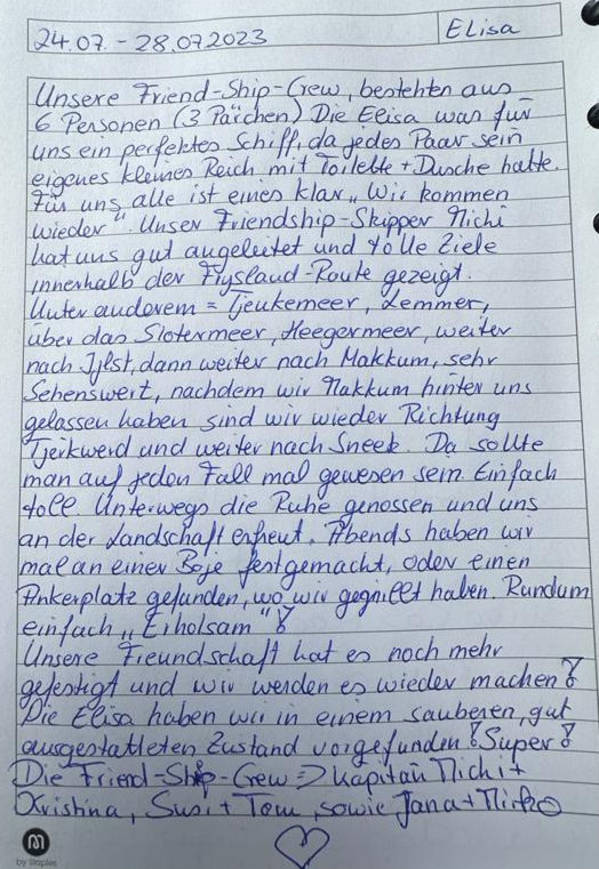 24.07. - 28.07.2023 Elisa
Unsere Friend-Ship-Crew, bestehten aus
6 Personen (3 Pärchen) Die Elisa war für
uns ein perfektes Schiff, da jedes Paar sein
eigenes kleines Reich mit Toilette + Dusche hatte.
Für uns alle ist eines klar „Wir kommen
wieder“. Unser Friendship-Skipper Michi
hat uns gut angeleitet und tolle Ziele
innerhalb der Frysland-Route gezeigt.
Unter anderem = Tjeukemeer, Lemmer,
über das Slotermeer, Heegermeer, weiter
nach Ijlst, dann weiter nach Makkum, sehr
Sehenswert, nachdem wir Makkum hinter uns
gelassen haben sind wir wieder Richtung
Tjerkwerd und weiter nach Sneek. Da sollte
man auf jeden Fall mal gewesen sein. Einfach
tolle. Unterwegs die Ruhe genossen und uns
an der Landschaft erfreut. Abends haben wir
mal an einer Boje festgemacht, oder einen
Ankerplatz gefunden, wo wir gegrillt haben. Rundum
einfach „Erholsam“!
Unsere Freundschaft hat es noch mehr
gefestigt und wir werden es wieder machen!
Die Elisa haben wir in einem sauberen, gut
ausgestatteten Zustand vorgefunden! Super!
Die Friend-Ship-Crew => Kapitän Michi +
Kristina, Susi + Tom, sowie Jana + Mirko
m
by Staples